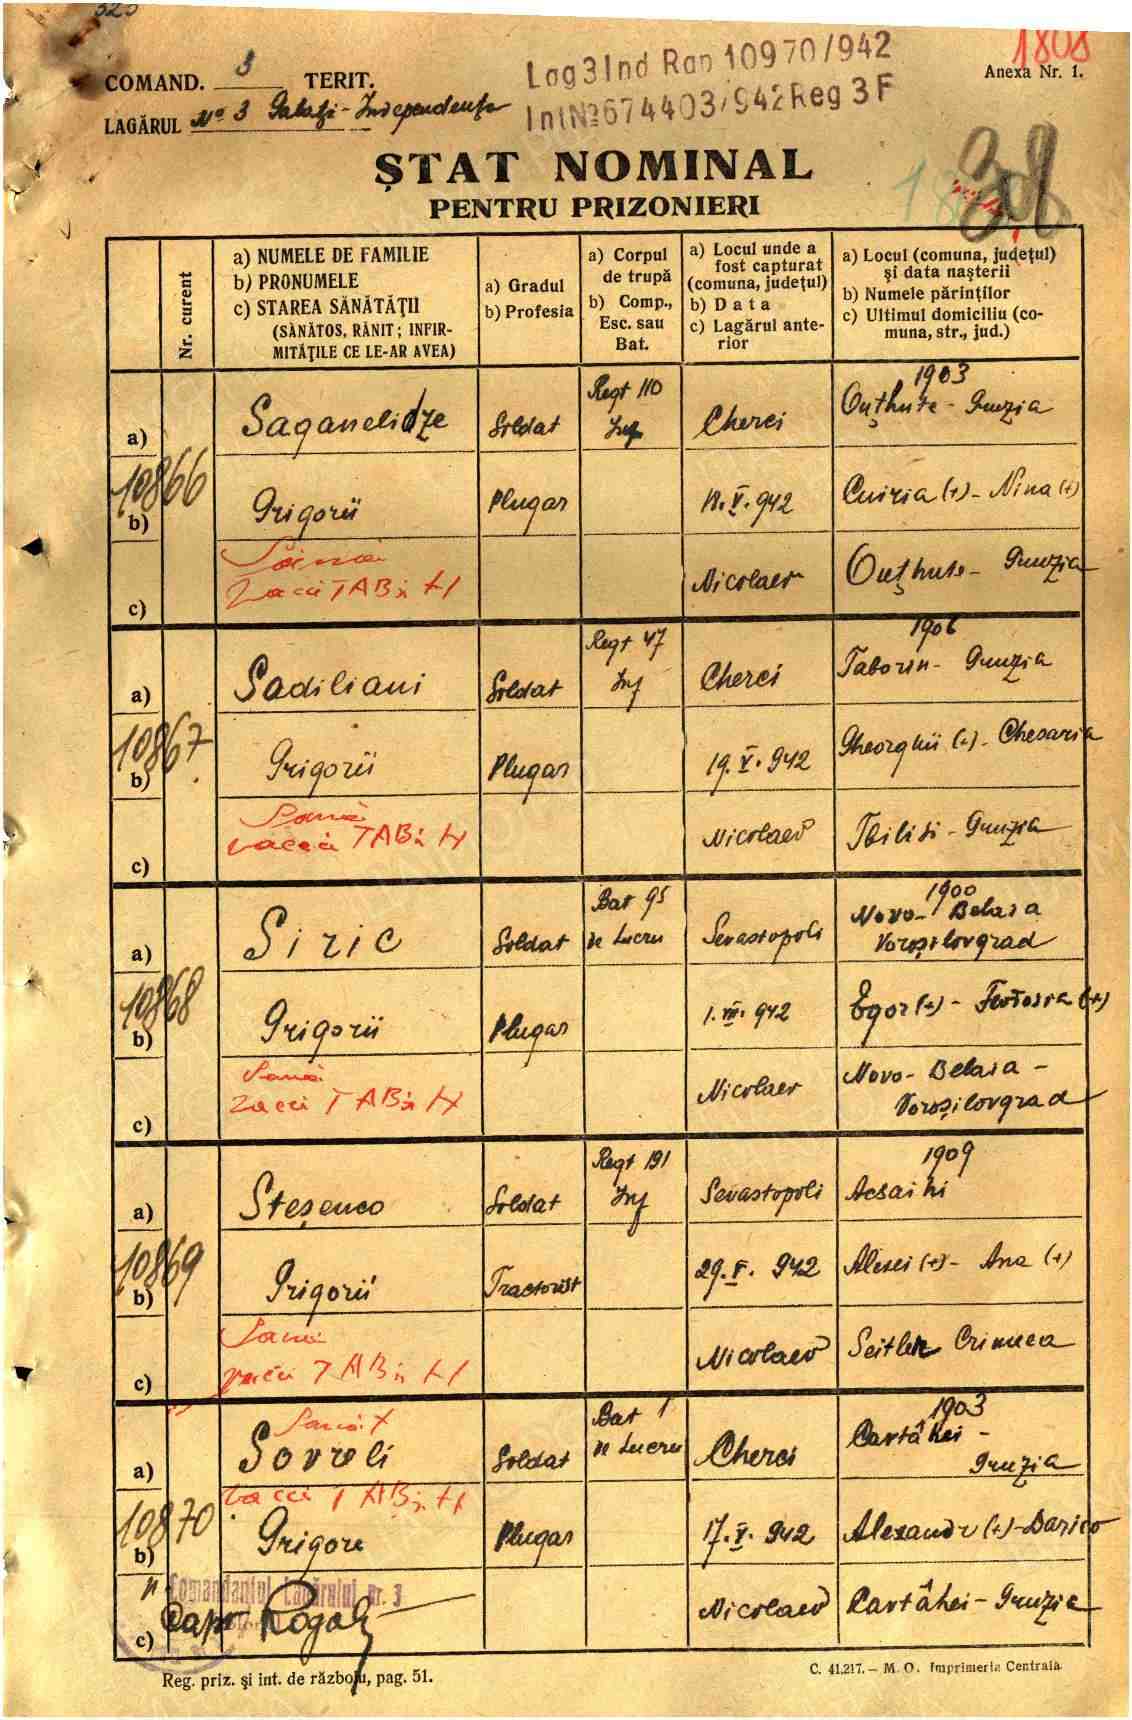 1808
COMAND. 3 TERIT.
Lag 3 Ind Rap 10970/942
Anexa Nr. 1.
LAGĂRUL No 3 Galaţi - Independenţa
Int № 674403/942 Reg 3 F
ŞTAT NOMINAL
PENTRU PRIZONIERI
Nr. curent
a) NUMELE DE FAMILIE
b) PRONUMELE
c) STAREA SĂNĂTĂŢII
(SĂNĂTOS, RĂNIT ; INFIR-
MITĂŢILE CE LE-AR AVEA)
a) Gradul
b) Profesia
a) Corpul
de trupă
b) Comp.,
Esc. sau
Bat.
a) Locul unde a
fost capturat
(comuna, judeţul)
b) Data
c) Lagărul ante-
rior
a) Locul (comuna, judeţul)
şi data naşterii
b) Numele părinţilor
c) Ultimul domiciliu (co-
muna, str., jud.)
1903
a) Saganelidze Soldat Regt 110 Inf Cherci Ouţhute - Gruzia
10866
b) Grigorii Plugar 18.V.942 Cuiria (+) - Nina (+)
c) Nicolaev Ouţhute - Gruzia
TAB
1906
a) Sadiliani Soldat Regt 47 Inf Cherci Taborin - Gruzia
10867
b) Grigorii Plugar 19.V.942 Gheorghii (+) - Chesaria
c) Nicolaev Tbilisi - Gruzia
TAB
1900
a) Siric Soldat Bat 95 de Lucru Sevastopoli Novo - Belaia
Voroşilovgrad
10868
b) Grigorii Plugar 1.VII.942 Egor (+) - Feodosia (+)
c) Nicolaev Novo - Belaia -
Voroşilovgrad
TAB
1909
a) Steşenco Soldat Regt 191 Inf Sevastopoli Acsaihi
10869
b) Grigorii Tractorist 29.V.942 Alexei (+) - Ana (+)
c) Nicolaev Seitler Crimeea
TAB
1903
a) Sovreli Soldat Bat 1 de Lucru Cherci Cartâhei -
Gruzia
TAB
10870
b) Grigore Plugar 17.V.942 Alexandr (+) - Darico
Comandantul Lagărului nr. 3
c) Nicolaev Cartâhei - Gruzia
Reg. priz. şi int. de războiu, pag. 51.
C. 41.217. — M. O. Imprimeria Centrala